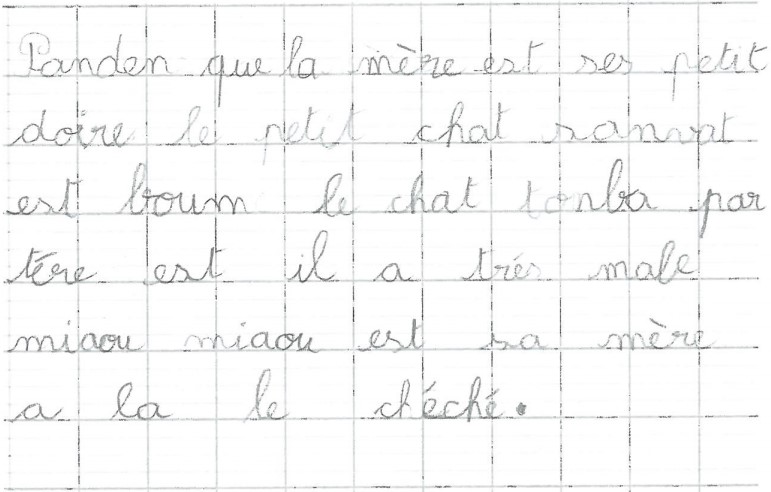 Panden que la mère est ses petit
doire le petit chat sanvat
est boum le chat tonba par
tère est il a trés male
miaou miaou est sa mère
a la le chéché.